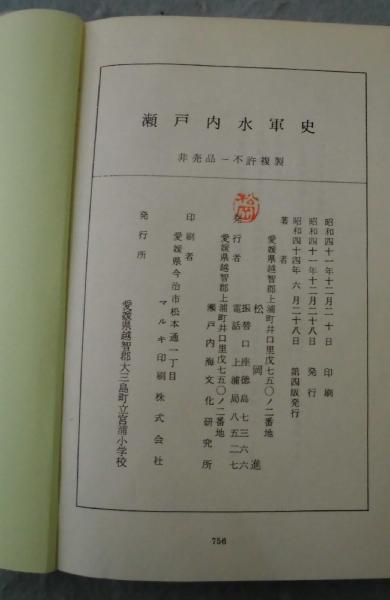 瀬戸内水軍史
非売品―不許複製
昭和四十一年十二月二十日 印刷
昭和四十一年十二月二十八日 発行
昭和四十四年六月二十八日 第四版発行
著者 松岡進
愛媛県越智郡上浦町井口里戊七五〇ノ二番地
振替口座徳島七三六六
電話上浦局八五二七
発行者 瀬戸内海文化研究所
愛媛県越智郡上浦町井口里戊七五〇ノ二番地
松岡
印刷者 マルキ印刷株式会社
愛媛県今治市松本通一丁目
発行所 愛媛県越智郡大三島町立宮浦小学校
756